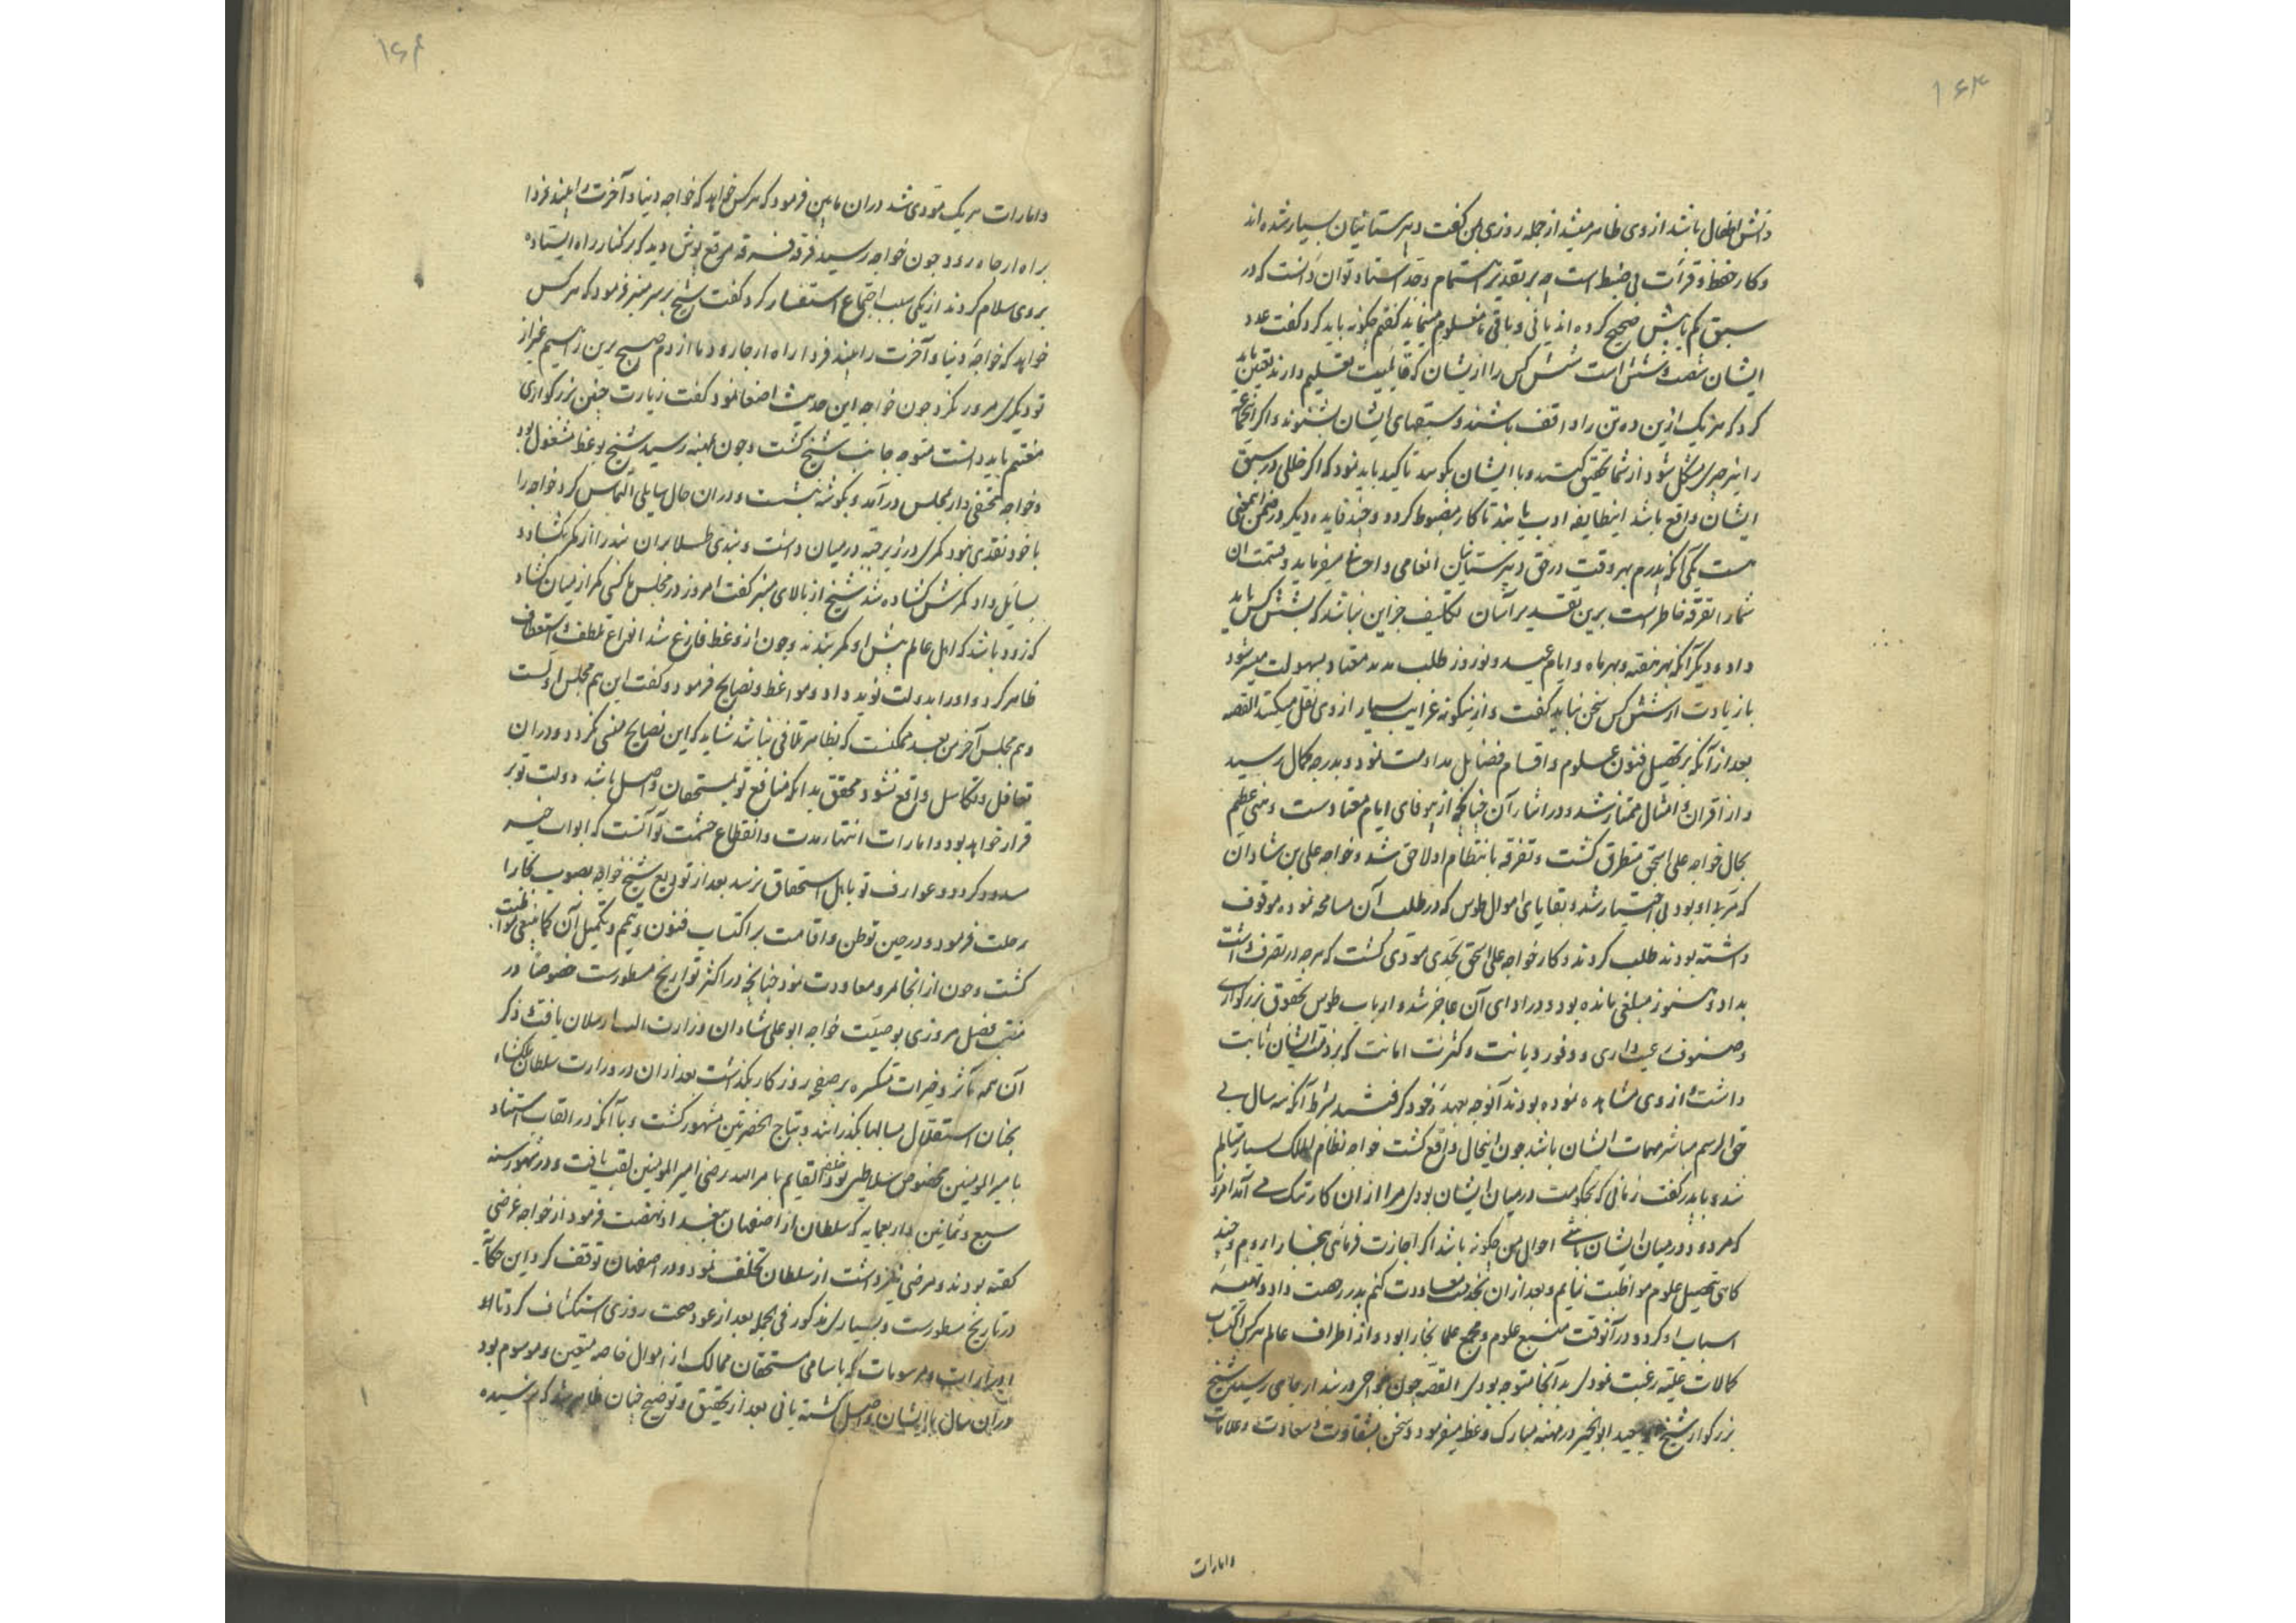 ۱۶۳
دانش اطفال باشد از وی ظاهر میشد از جمله روزی بمن گفت دبیرستانیان بسیار شده اند
و کار حفظ و قرآت بی ضبط است چه بر تقدیر اهتمام وجد استاد توان دانست که در
سبق کم باپیش صحیح کرده اند یا نی و باقی نامعلوم میماند گفتم چکونه باید کرد گفت عدد
ایشان شصت و شش است شش کس را از یشان که قابلیت تعلیم دارند تعیین باید
کرد که هر یک ازین ده تن را واقف باشند و سبقهای ایشان بشنوند و اگر آنجماعه
را نیز چیزی مشکل شود از شما تحقیق کنند و با ایشان بگویید تاکید باید نمود که اگر خللی در سبق
ایشان واقع باشد اینطایفه ادب یابند تا کار مضبوط کردد و چند فایده دیگر در ضمن اینمعنی
هست یکی آنکه پدرم بهر وقت در حق دبیرستانیان انعامی و احسانی میفرماید و قسمت آن
شما را تفرقه خاطر است برین تقدیر بر آسان تکلیف جز این نباشد که بشش کس باید
داد و دیگر آنکه بهر هفته و بهر ماه و ایام عید و نوروز طلب مدد معتاد بسهولت میسر شود
با زیادت از شش کس سخن نباید گفت و ازینگونه غرایب بسیار از وی نقل میکنند القصه
بعد از آنکه بر تحصیل فنون علوم و اقسام فضایل مداومت نمود و بدرجه کمال رسید
و از اقران و امثال ممتاز شد و در اثنای آن چنانچه از بیوفای ایام معتادست وهنی عظیم
بحال خواجه علی اسحق متطرق گشت و تفرقه با نتظام او لاحق شد و خواجه علی بن شادان
که مربی او بود بی اختیار شد و بقایای اموال طوس که در طلب آن مسامحه نموده موقوف
داشته بودند طلب کردند و کار خواجه علی اسحق بحدی مودی گشت که هر چه در تصرف داشت
بداد و هنوز مبلغی مانده بود و در ادای آن عاجز شد و ارباب طوس بحقوق بزرگواری
و صنوف عهدداری و وفور دیانت و کثرت امانت که بر ذمت ایشان ثابت
داشت و از وی مشاهده نموده بودند آنوجه بعهده خود گرفتند بشرط آنکه سه سال بی
حق المرسم مباشر مهمات ایشان باشد چون اینحال واقع گشت خواجه نظام الملک بسیار متالم
شد و با پدر گفت زمانی که بحکومت در میان ایشان بودی مرا از ان کار ننگ می آمد امروز
که مزدور در میان ایشان باشی احوال من چگونه باشد اگر اجازت فرمائی ببخارا روم و چند
گاهی بتحصیل علوم مواظبت نمایم و بعد از ان بخدمت معاودت کنم پدر رخصت داد و تهیه
اسباب او کرد و در آنوقت منبع علوم و مجمع علما بخارا بود و از اطراف عالم هر کس باکتساب
کمالات علمیه رغبت نمودی بدانجا متوجه بودی القصه چون بنواحی دربند ارجامی رسید شیخ
بزرگوار شیخ ابو سعید ابوالخیر در مهنه مبارک وعظ میفرمود و سخن بشقاوت و سعادت و علامات
وامارات
۱۶۴
و امارات هر یک مودی شد در ان مابین فرمود که هر کس خواهد که خواجه دنیا و آخرت را بیند فردا
براه ارجاه رود چون خواجه رسید فرقه فرقه مرقع پوش دید که بر کنار راه ایستاده
بر وی سلام کردند از یکی سبب اجتماع استفسار کرد گفت شیخ بر سر منبر فرمود که هر کس
خواهد که خواجه دنیا و آخرت را بیند فردا براه ارجا رود ما از دم صبح برین راهیم غیر از
تو دیگری مرور نکرد چون خواجه این حدیث اصغا نمود گفت زیارت چنین بزرگواری
مغتنم باید دانست متوجه جانب شیخ گشت و چون بمهنه رسید شیخ بوعظ مشغول بود
و خواجه مختفی وار بمجلس در آمد و بگوشه بنشست و در ان حال سایلی التماس کرد خواجه را
با خود نقدی نبود کمری در زیر قبه در میان داشت و بندی طلا بر ان بند را از کمر بگشاد و
بسایل داد کمرش گشاده شد شیخ از بالای منبر گفت امروز در مجلس ما کسی کمر از میان گشاد
که زود باشد که اهل عالم پیش او کمر بندند و چون از وعظ فارغ شد انواع تلطف و استعطاف
ظاهر کرد و او را بدولت نوید داد و مواعظ و نصایح فرمود و گفت این هم مجلس اولست
و هم مجلس آخر من بعد ممکنست که بظاهر تلاقی نباشد شاید که این نصایح منسی نکردد و در ان
تغافل و تکاسل واقع نشود و محقق بدانکه منافع تو بمستحقان واصل باشد دولت تو بر
قرار خواهد بود و امارات انتهاء مدت و انقطاع حشمت تو آنست که ابواب خیر
مسدود کردد و عوارف تو باهل استحقاق نرسد بعد از تودیع شیخ خواجه بصوب بخارا
رحلت فرمود و در حین توطن و اقامت بر اکتساب فنون و تتمیم و تکمیل آن کما ینبغی مواظبت
گشت و چون از انجا بمرو معاودت نمود چنانچه در اکثر تواریخ مسطورست خصوصاً در
منتخب فضل مروزی بوصیت خواجه ابو علی شادان وزارت الب ارسلان یافت و ذکر
آن همه مآثر و خیرات تسکره بر صفحه روزگار بگذاشت بعد از ان در وزارت سلطان ملکشاه
بچنان استقلال سالها بگذرانید و بتاج الحضرتین مشهور گشت و با آنکه در القاب استناد
بامیر المومنین مخصوص سلاطین بود از خلیفه القایم بامر الله رضی امیر المومنین لقب یافت و در شهور سنه
سبع و ثمانین و اربعمایه که سلطان از اصفهان ببغداد نهضت فرمود از خواجه عرضی
گفته بودند و مرضی نیز داشت از سلطان تخلف نمود و در اصفهان توقف کرد این حکایت
در تاریخ مسطورست و بسیار مذکور فی الجمله بعد از عود صحت روزی استکشاف کرد تا از
ادرارات و مرسومات که باسامی مستحقان ممالک از اموال خاصه متعین و موسوم بود
در ان سال بایشان واصل گشته یا نی بعد از تحقیق و توضیح چنان ظاهر شد که نرسیده